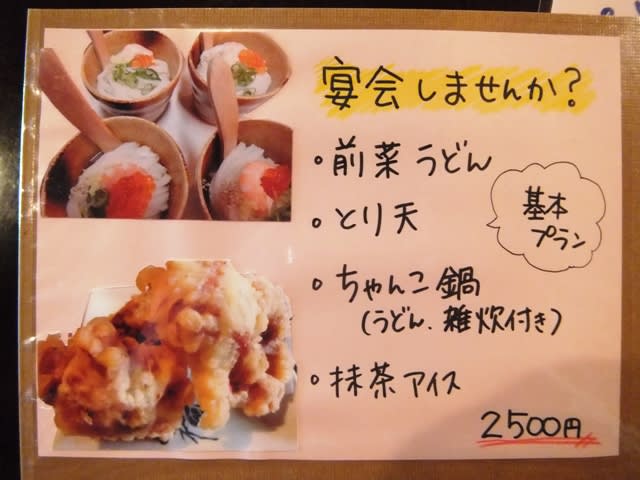 宴会しませんか?
・前菜うどん
・とり天
・ちゃんこ鍋
(うどん、雑炊付き)
・抹茶アイス
基本
プラン
2500円